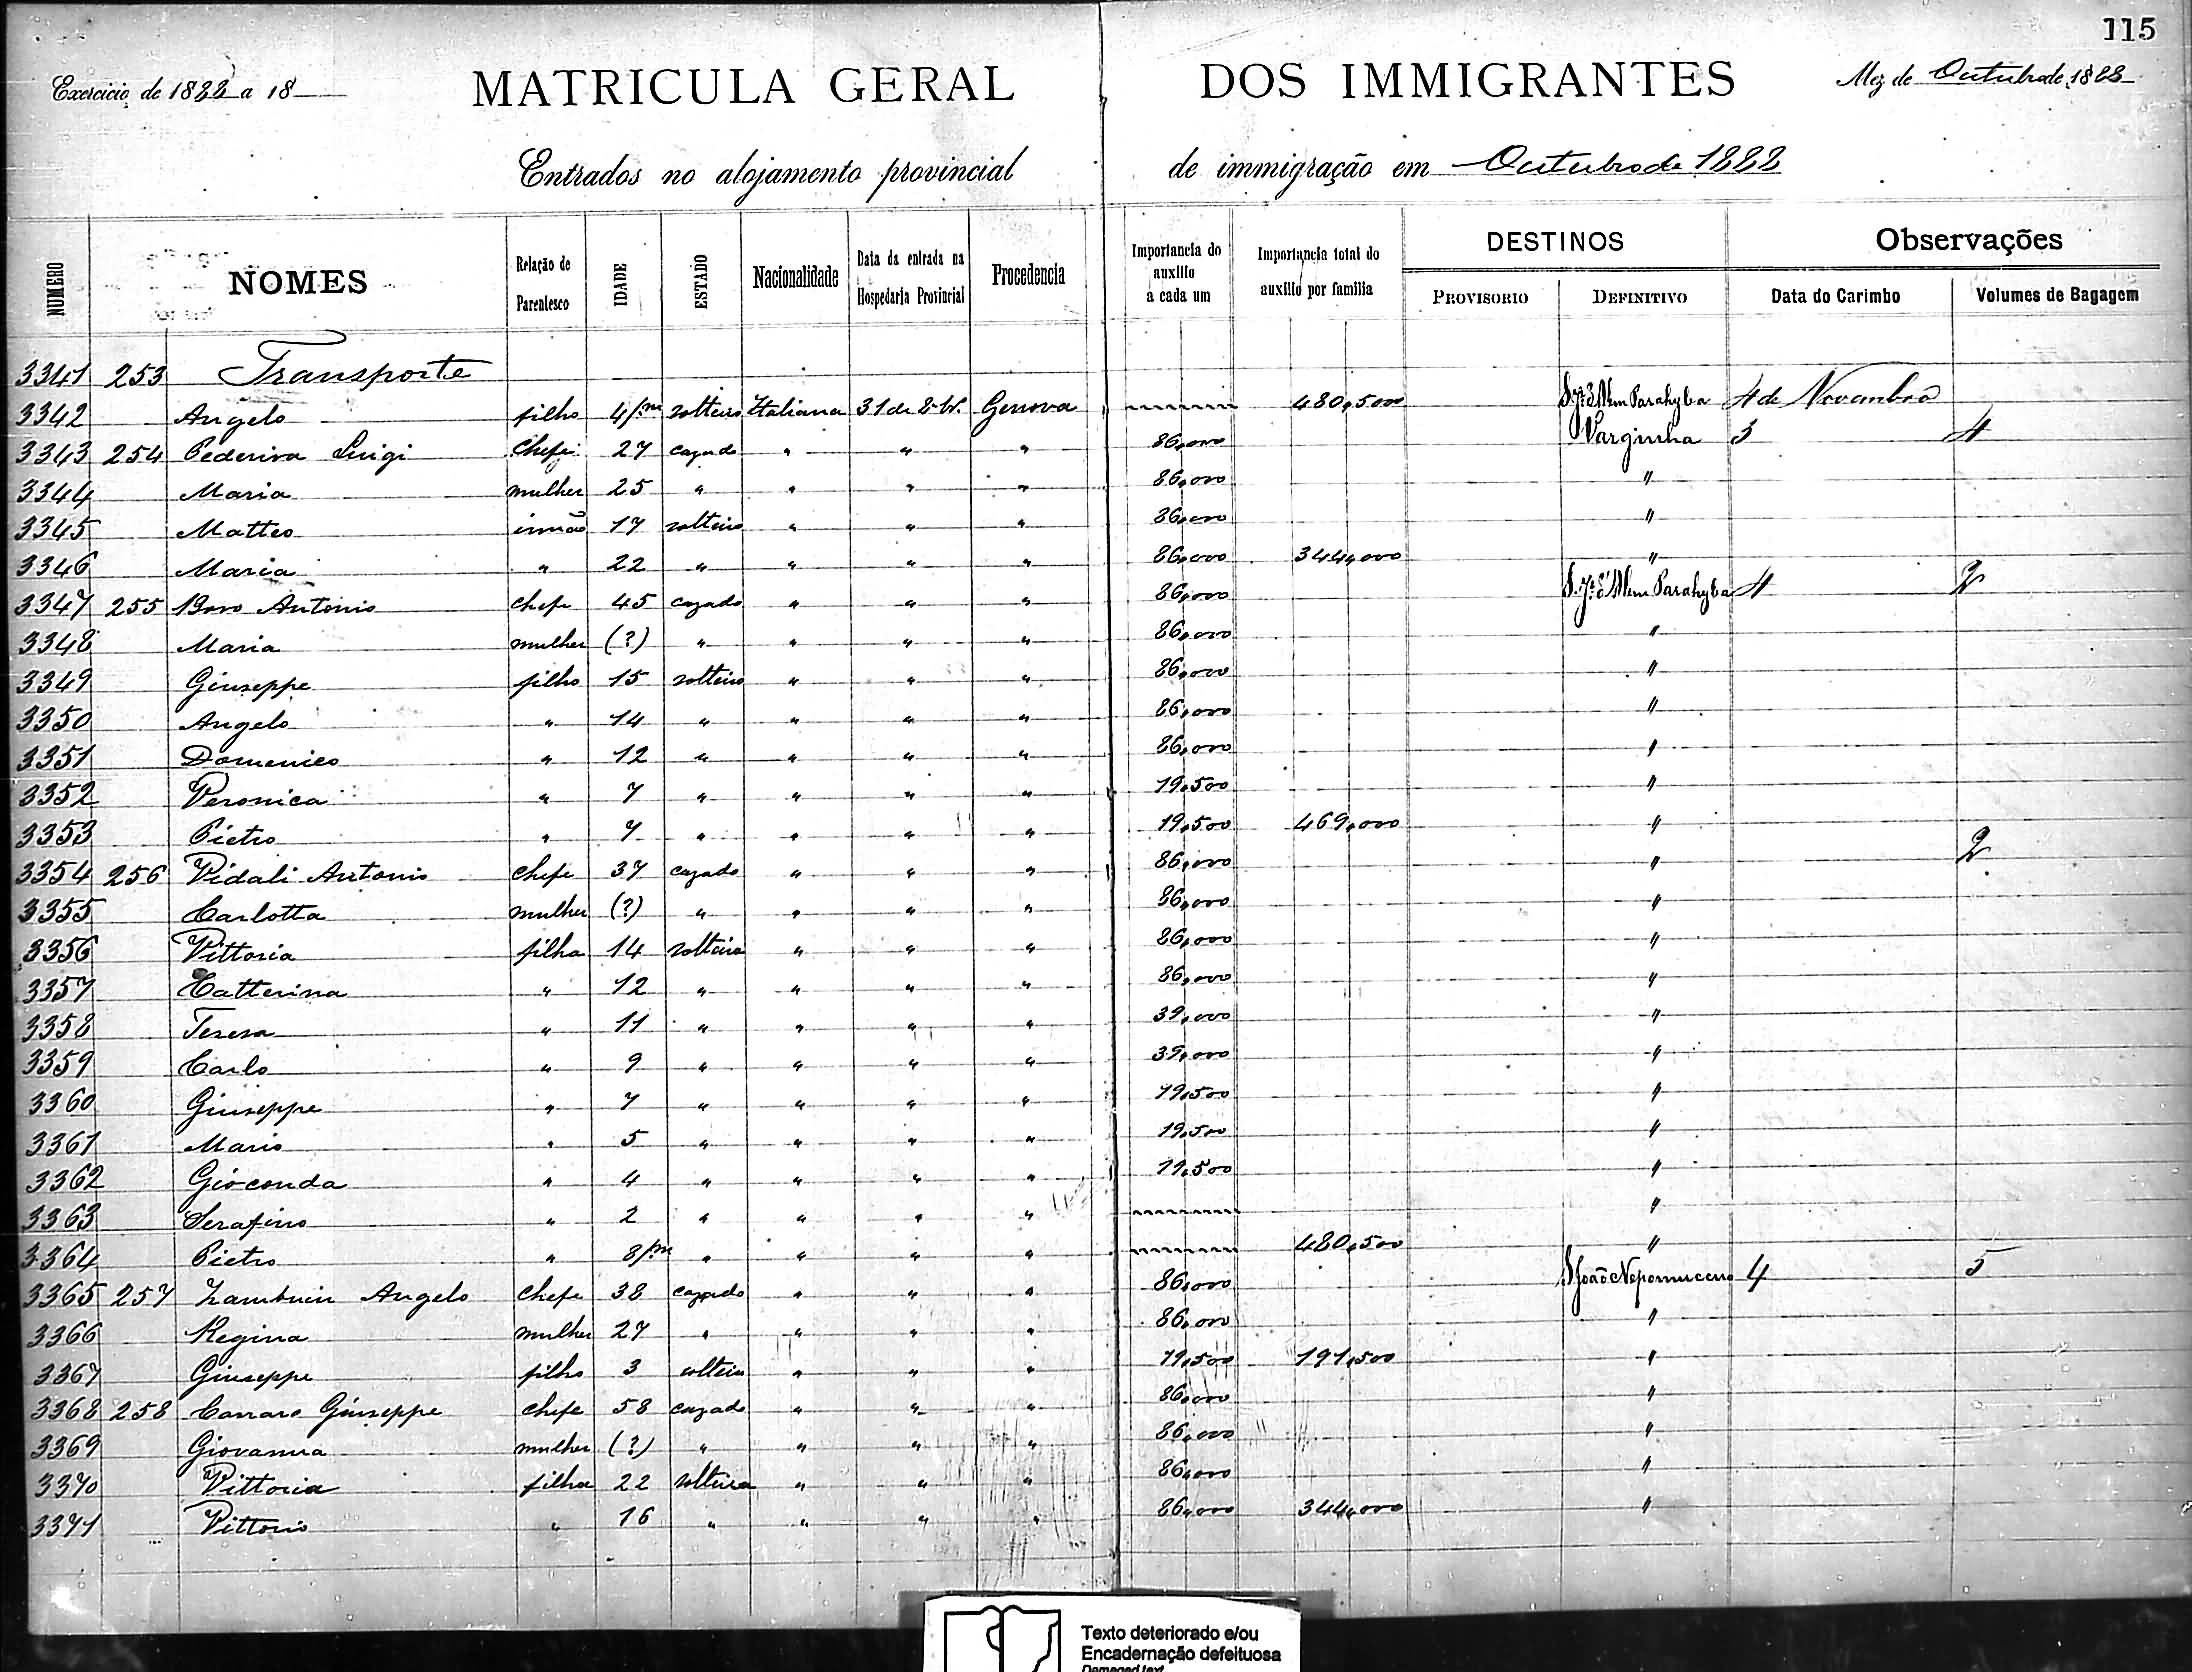 115
Exercicio de 1888 a 18 MATRICULA GERAL DOS IMMIGRANTES Mez de Outubro de 1888
Entrados no alojamento provincial de immigração em Outubro de 1888
NUMERO NOMES Relação de Parentesco IDADE ESTADO Nacionalidade Data da entrada na Hospedaria Provincial Procedencia Importancia do auxilio a cada um Importancia total do auxilio por familia DESTINOS PROVISORIO DEFINITIVO Observações Data do Carimbo Volumes de Bagagem
3341 253 Transporte
3342 Angelo filho 4/m solteiro Italiana 31 de Genova 480,5000 Parahyba 4 de Novembro
3343 254 Pederiva Luigi Chefe 27 cazado " " " 86,000 Varginha 3 4
3344 Maria mulher 25 " " " " 86,000 "
3345 Matteo irmão 17 solteiro " " " 86,000 "
3346 Maria " 22 " " " " 86,000 344,000 "
3347 255 Boro Antonio chefe 45 cazado " " " 86,000 Parahyba 4 2
3348 Maria mulher (?) " " " " 86,000 "
3349 Giuseppe filho 15 solteiro " " " 86,000 "
3350 Angelo " 14 " " " " 86,000 "
3351 Domenico " 12 " " " " 86,000 "
3352 Veronica " 7 " " " " 19,500 "
3353 Pietro " 7 " " " " 19,500 469,000 "
3354 256 Vidali Antonio chefe 37 cazado " " " 86,000 " 2
3355 Carlotta mulher (?) " " " " 86,000 "
3356 Vittoria filha 14 solteira " " " 86,000 "
3357 Catterina " 12 " " " " 86,000 "
3358 Teresa " 11 " " " " 39,000 "
3359 Carlo " 9 " " " " 39,000 "
3360 Giuseppe " 7 " " " " 19,500 "
3361 Mario " 5 " " " " 19,500 "
3362 Gioconda " 4 " " " " 19,500 "
3363 Serafino " 2 " " " " "
3364 Pietro " 8/m " " " " 480,500 "
3365 257 Zambuin Angelo chefe 38 cazado " " " 86,000 S João Nepomuceno 4 5
3366 Regina mulher 27 " " " " 86,000 "
3367 Giuseppe filho 3 solteiro " " " 19,500 191,500 "
3368 258 Carraro Giuseppe chefe 58 cazado " " " 86,000 "
3369 Giovanna mulher (?) " " " " 86,000 "
3370 Vittoria filha 22 solteira " " " 86,000 "
3371 Vittorio " 16 " " " " 86,000 344,000 "
Texto deteriorado e/ou
Encadernação defeituosa
Damaged text